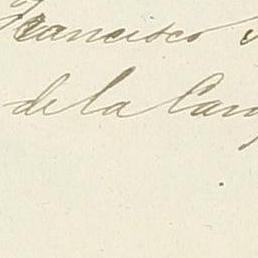 Francisco
de la Camp